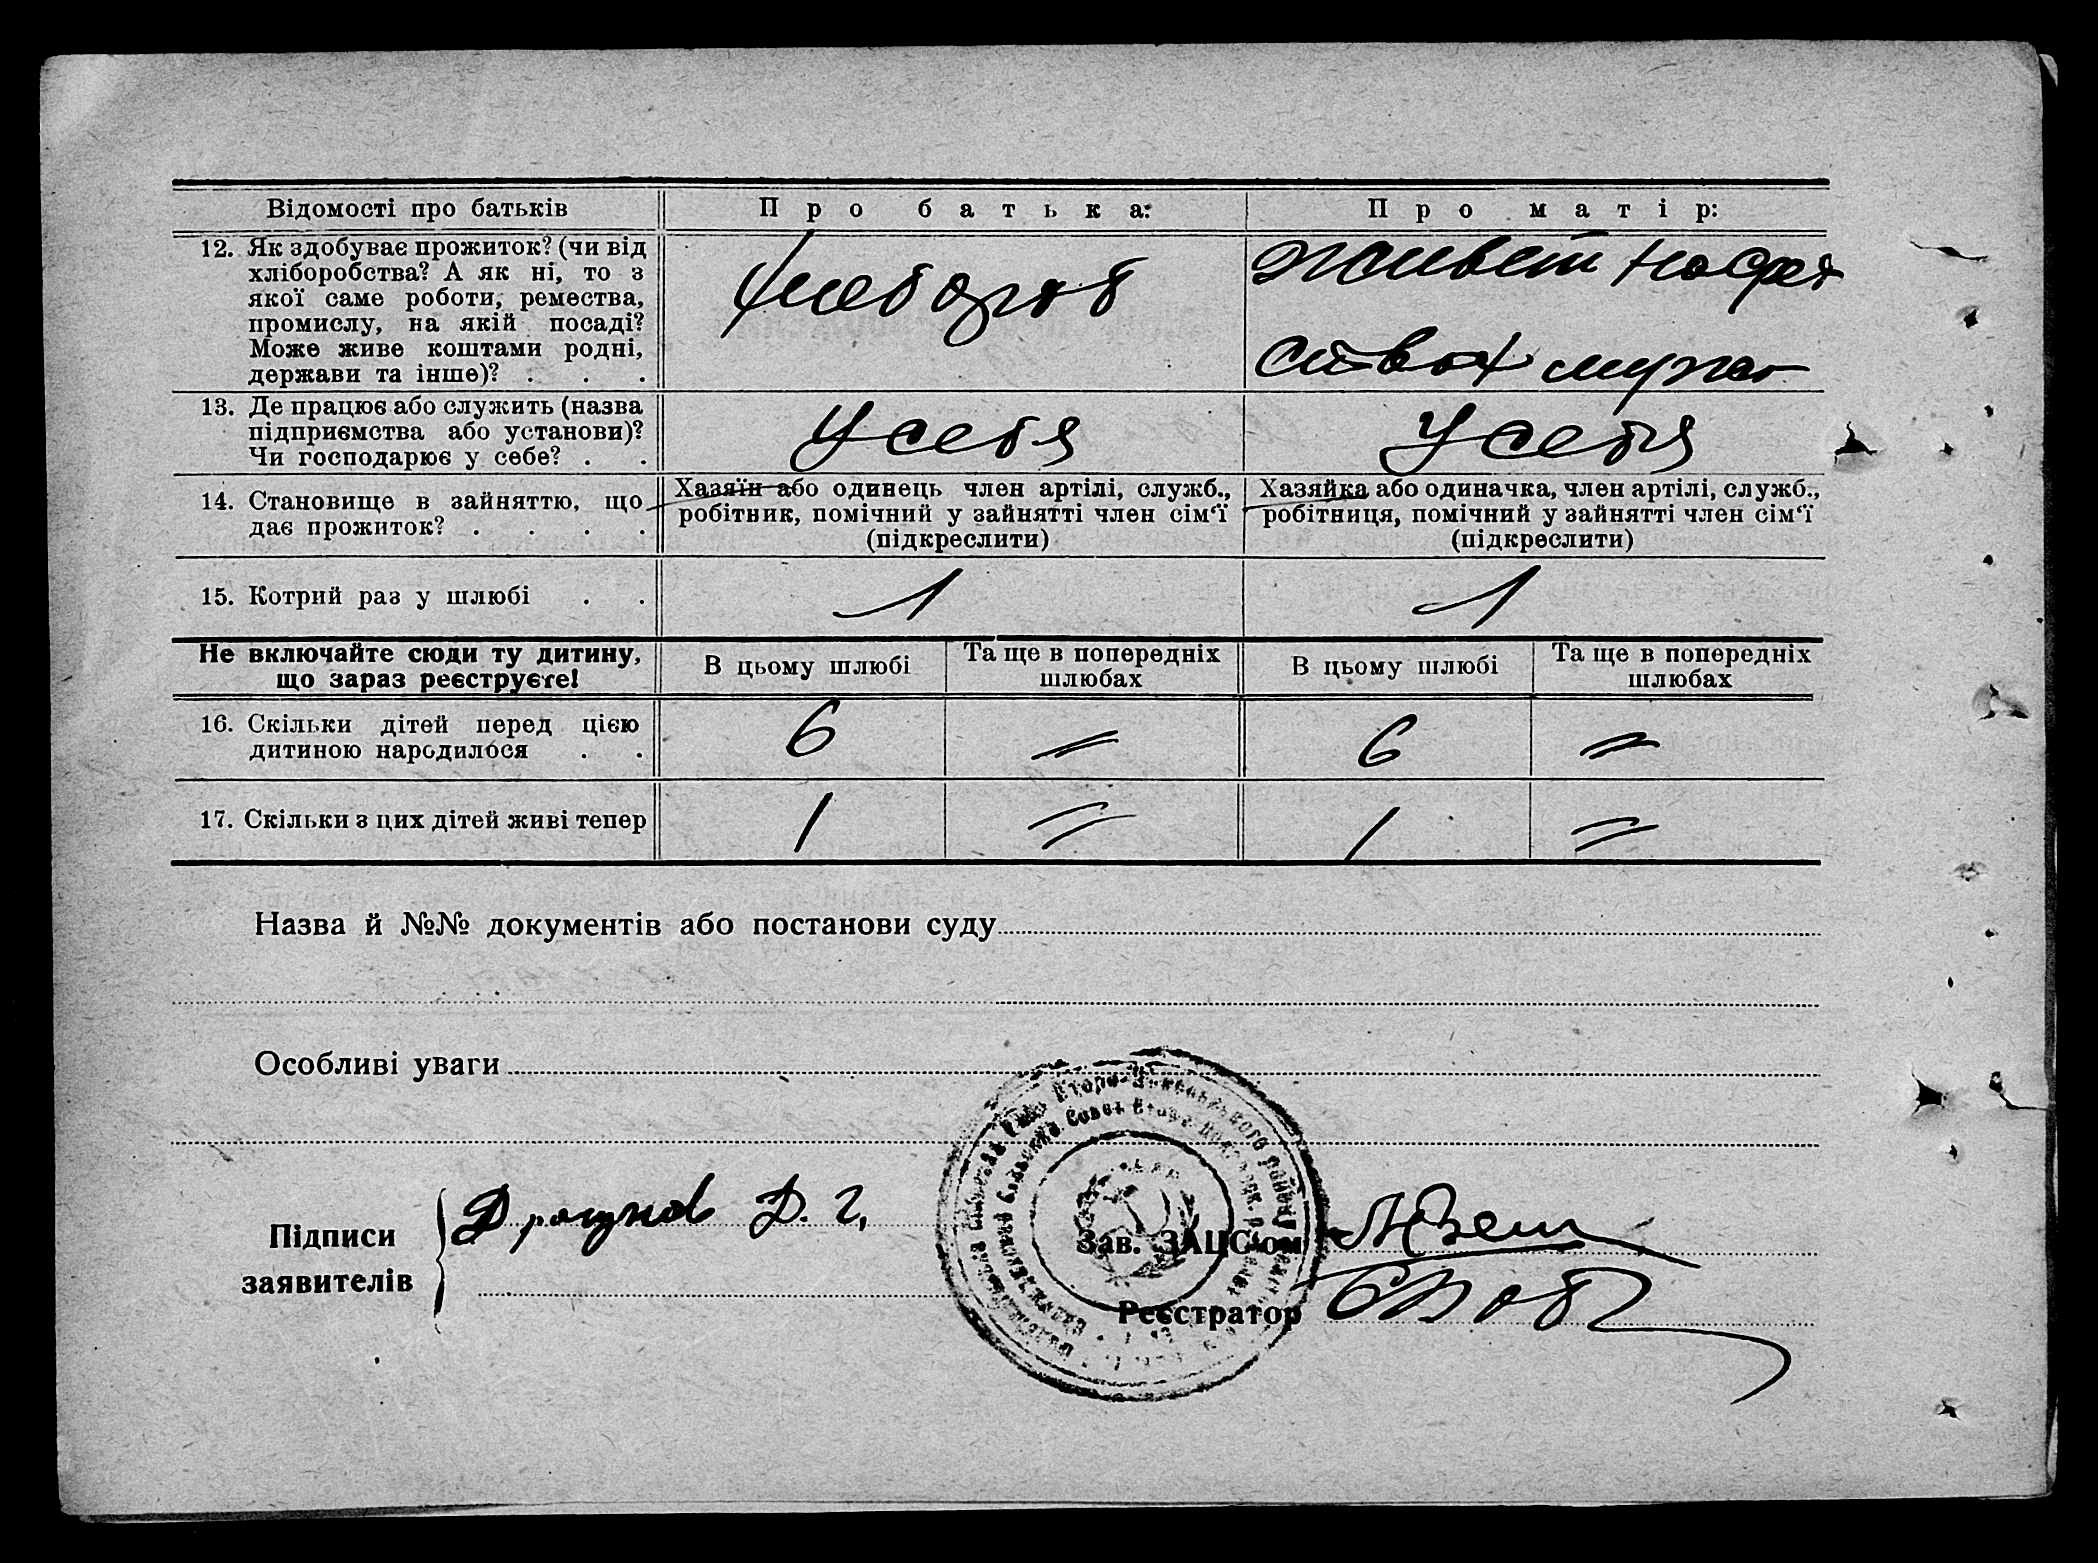 Відомості про батьків
Про батька:
Про матір:
12. Як здобуває прожиток? (чи від
хліборобства? А як ні, то з
якої саме роботи, ремества,
промислу, на якій посаді?
Може живе коштами родні,
держави та інше)? . . .
хлебороб
живет на сред
ствах мужа
13. Де працює або служить (назва
підприємства або установи)?
Чи господарює у себе? . .
У себя
У себя
14. Становище в зайняттю, що
дає прожиток? . . . .
Хазяїн або одинець член артілі, служб.,
робітник, помічний у зайнятті член сім‘ї
(підкреслити)
Хазяйка або одиначка, член артілі, служб.,
робітниця, помічний у зайнятті член сім‘ї
(підкреслити)
15. Котрий раз у шлюбі . .
1
1
Не включайте сюди ту дитину,
що зараз реєструєте!
В цьому шлюбі
Та ще в попередніх
шлюбах
В цьому шлюбі
Та ще в попередніх
шлюбах
16. Скільки дітей перед цією
дитиною народилося . .
6
=
6
=
17. Скільки з цих дітей живі тепер
1
=
1
=
Назва й №№ документів або постанови суду
Особливі уваги
Підписи
заявителів
Драгунов Д. Г.
Зав. ЗАЦС'ом
Реєстратор